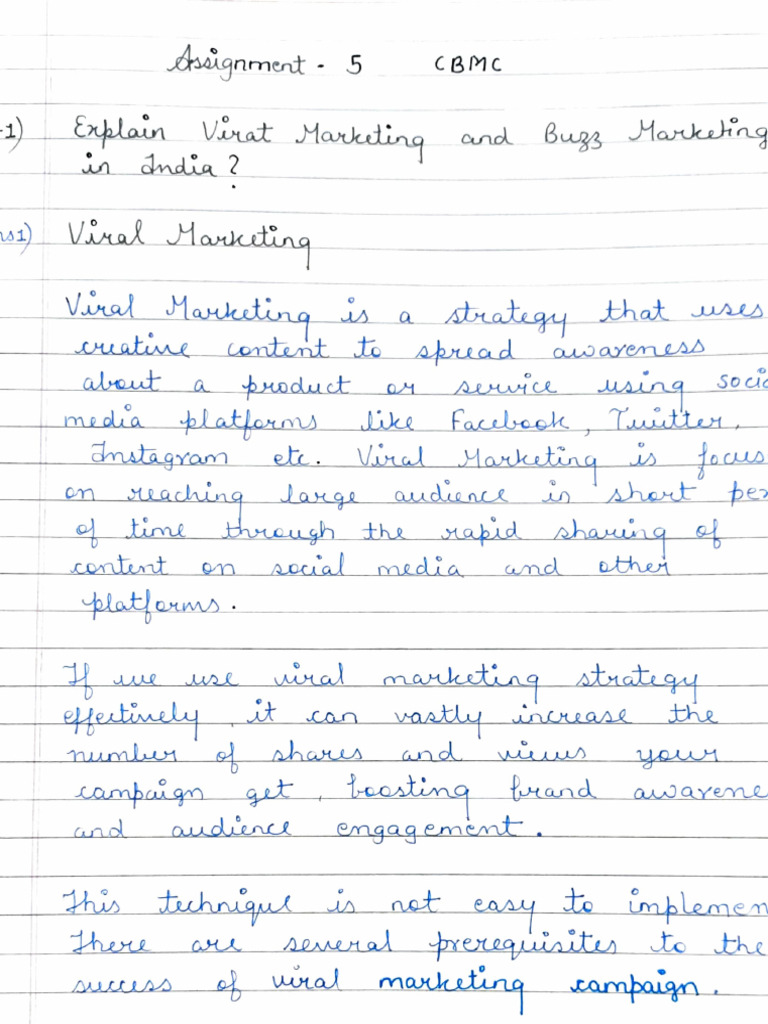 Assignment - 5 CBMC
-1) Explain Virat Marketing and Buzz Marketing
in India?
ns1) Viral Marketing
Viral Marketing is a strategy that uses
creative content to spread awareness
about a product or service using socia
media platforms like Facebook, Twitter,
Instagram etc. Viral Marketing is focus
on reaching large audience in short per
of time through the rapid sharing of
content on social media and other
platforms.
If we use viral marketing strategy
effectively, it can vastly increase the
number of shares and views your
campaign get, boosting brand awarene
and audience engagement.
This technique is not easy to implemen
There are several prerequisites to the
success of viral marketing campaign.